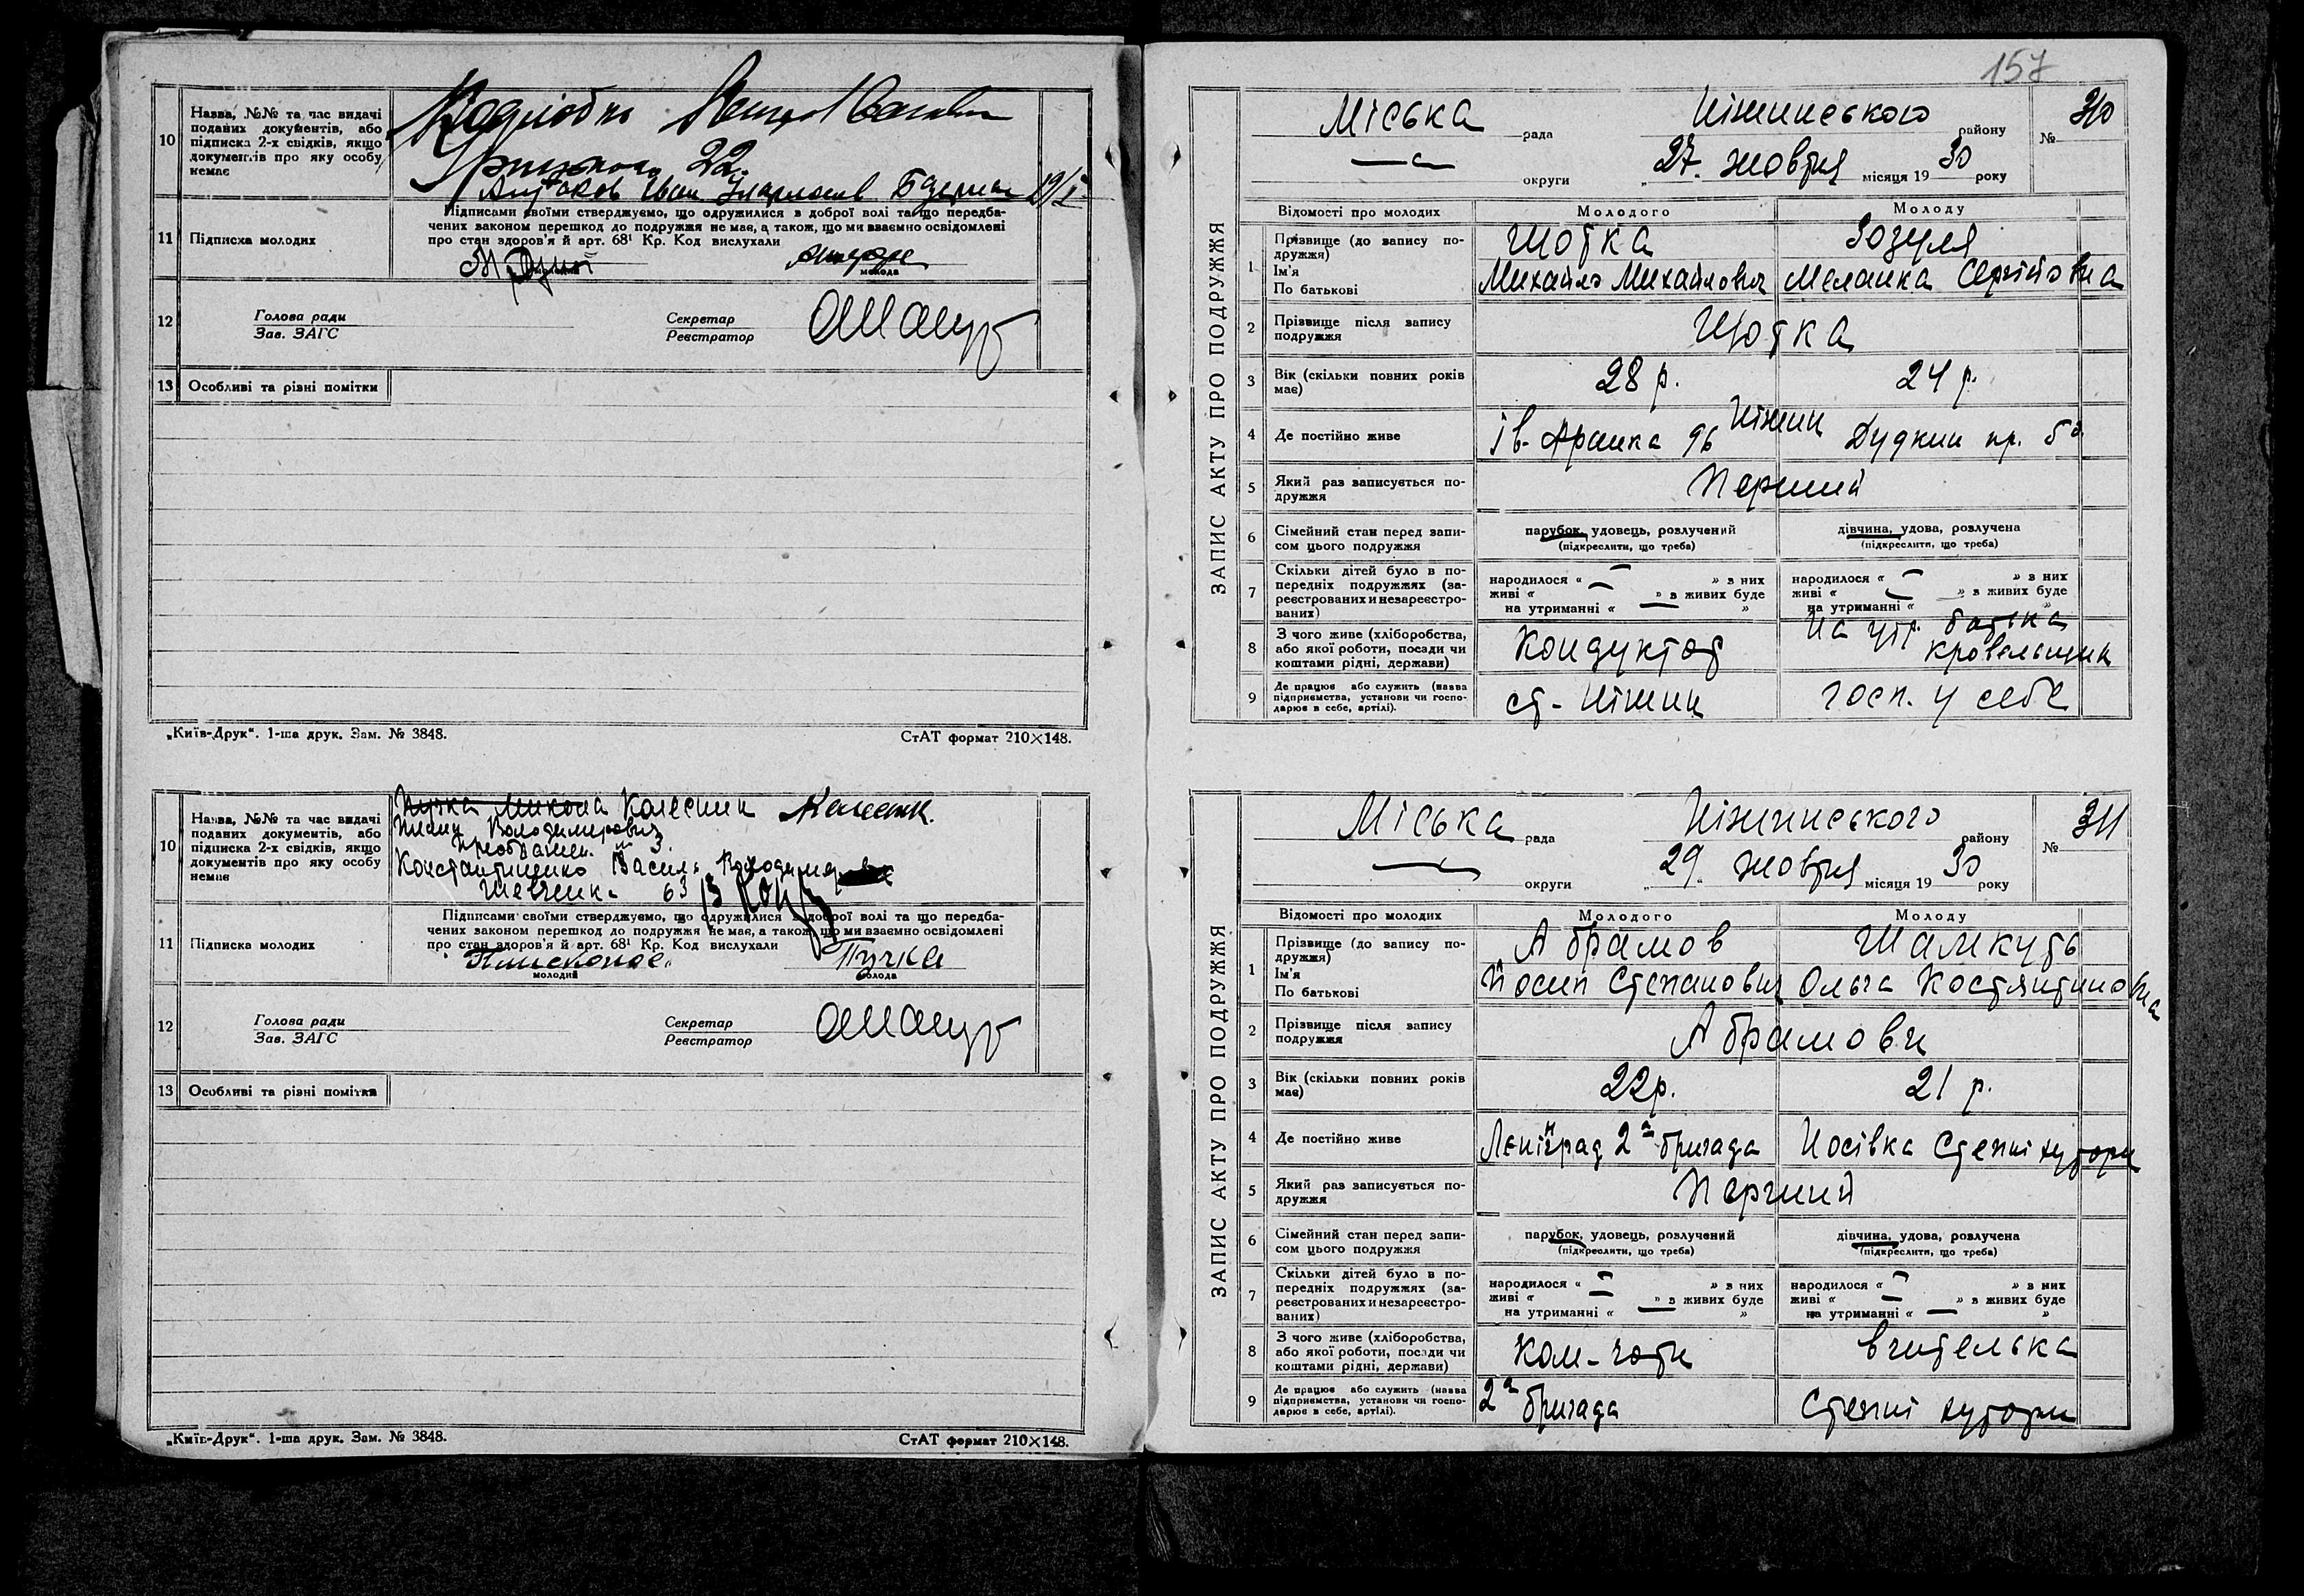 10
Назва, №№ та час видачі
поданих документів, або
підписка 2-х свідків, якщо
документів про яку особу
немає
22
Іван
11
Підписка молодих
Підписами своїми стверджуємо, що одружилися в доброї волі та що передба-
чених законом перешкод до подружжя не має, а також, що ми взаємно освідомлені
про стан здоров'я й арт. 68¹ Кр. Код вислухали
молода
12
Голова ради
Зав. ЗАГС
Секретар
Реєстратор
13
Особливі та рівні помітки
„Київ-Друк". 1-ша друк. Зам. № 3848.
СтАТ формат 210×148.
10
Назва, №№ та час видачі
поданих документів, або
підписка 2-х свідків, якщо
документів про яку особу
немає
Микола Колесник
Володимирович
3.
Константиненко Василь
Шевченка 63
11
Підписка молодих
Підписами своїми стверджуємо, що одружилися в доброї волі та що передба-
чених законом перешкод до подружжя не має, а також, що ми взаємно освідомлені
про стан здоров'я й арт. 68¹ Кр. Код вислухали
Пучка
молодий
молода
12
Голова ради
Зав. ЗАГС
Секретар
Реєстратор
13
Особливі та рівні помітки
„Київ-Друк". 1-ша друк. Зам. № 3848.
СтАТ формат 210×148.
157
ЗАПИС АКТУ ПРО ПОДРУЖЖЯ
Міська рада Ніжинського району № 310
— округи „27„ жовтня місяця 1930 року
Відомості про молодих
Молодого
Молоду
1
Прізвище (до запису по-
дружжя)
Ім'я
По батькові
Щотка
Михайло Михайлович
Зозуля
Меланка Сергіївна
2
Прізвище після запису
подружжя
Щотка
3
Вік (скільки повних років
має)
28 р.
24 р.
4
Де постійно живе
Ніжин
Ів. Франка 96
Дудкин пр. 5а
5
Який раз записується по-
дружжя
Перший
6
Сімейний стан перед запи-
сом цього подружжя
парубок, удовець, розлучений
(підкреслити, що треба)
дівчина, удова, розлучена
(підкреслити, що треба)
7
Скільки дітей було в по-
передніх подружжях (за-
реєстрованих и незареєстро-
ваних)
народилося « — » в них
живі « — » в живих буде
на утриманні « »
народилося « — » в них
живі « — » в живих буде
на утриманні « »
8
З чого живе (хліборобства,
або якої роботи, посади чи
коштами рідні, держави)
Кондуктор
На утр. батька
кровельщик
9
Де працює або служить (назва
підприємства, установи чи госпо-
дарює в себе, артілі).
ст. Ніжин
госп. у себе
ЗАПИС АКТУ ПРО ПОДРУЖЖЯ
Міська рада Ніжинського району № 311
— округи „29„ жовтня місяця 1930 року
Відомості про молодих
Молодого
Молоду
1
Прізвище (до запису по-
дружжя)
Ім'я
По батькові
Абрамов
Йосип Степанович
Шамкуть
Ольга Костянтиновна
2
Прізвище після запису
подружжя
Абрамови
3
Вік (скільки повних років
має)
22р.
21 р.
4
Де постійно живе
Ленінград 2а бригада
Носівка Степні хутори
5
Який раз записується по-
дружжя
Перший
6
Сімейний стан перед запи-
сом цього подружжя
парубок, удовець, розлучений
(підкреслити, що треба)
дівчина, удова, розлучена
(підкреслити, що треба)
7
Скільки дітей було в по-
передніх подружжях (за-
реєстрованих и незареєстро-
ваних)
народилося « — » в них
живі « — » в живих буде
на утриманні « »
народилося « — » в них
живі « — » в живих буде
на утриманні « — »
8
З чого живе (хліборобства,
або якої роботи, посади чи
коштами рідні, держави)
Ком-роти
вчителька
9
Де працює або служить (назва
підприємства, установи чи госпо-
дарює в себе, артілі).
2а бригада
Степні хутори